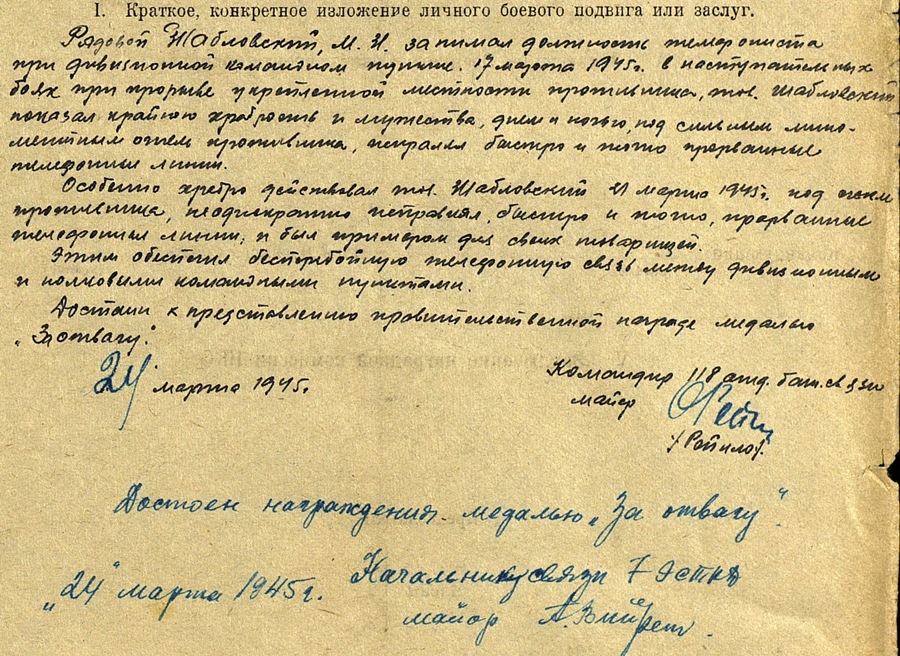 I. Краткое, конкретное изложение личного боевого подвига или заслуг.
Рядовой Шабловский, М. И. занимал должность телефониста
при дивизионной командном пункте. 17 марта 1945г. в наступательных
боях при прорыве укрепленной местности противника, тов. Шабловский
показал крайную храбрость и мужества, днем и ночью, под сильным мино-
метным огнем противника, исправлял быстро и точно прерванные
телефонные линии.
Особенно храбро действовал тов. Шабловский 21 марта 1945г. под огнем
противника, неоднократно исправлял, быстро и точно, прерванные
телефонные линии, и был примером для своих товарищей.
Этим обеспечил бесперебойную телефонную связь между дивизионным
и полковыми командными пунктами.
Достоин к представлению правительственной награде медалью
"За отвагу".
24 марта 1945г.
Командир 118 отд. бат. связи
майор
Достоен награждения медалью "За отвагу".
"24" марта 1945г.
Начальник связи 7 Эсткд
майор А.